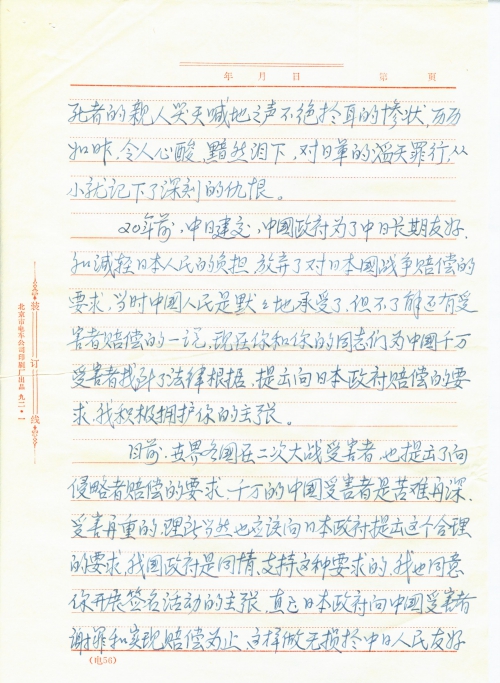 年 月 日 第 页
死者的亲人哭天喊地之声不绝于耳的惨状,历历
如昨,令人心酸,黯然泪下,对日军的滔天罪行,从
小就记下了深刻的仇恨。
20年前,中日建交,中国政府为了中日长期友好,
和减轻日本人民的负担,放弃了对日本国战争赔偿的
要求,当时中国人民是默々地承受了,但不了解还有受
害者赔偿的一说,现在你和你的同志们为中国千万
受害者找到了法律根据,提出向日本政府赔偿的要
求,我积极拥护你的主张。
目前,世界各国在二次大战受害者,也提出了向
侵略者赔偿的要求,千万的中国受害者是苦难再深,
受害再重的,理所当然也应该向日本政府提出这个合理
的要求,我国政府是同情,支持这种要求的,我也同意
你开展签名活动的主张,直到日本政府向中国受害者
谢罪和实现赔偿为止,这样做无损于中日人民友好
(电56)
装订线
北京市电车公司印刷厂出品 九二·一